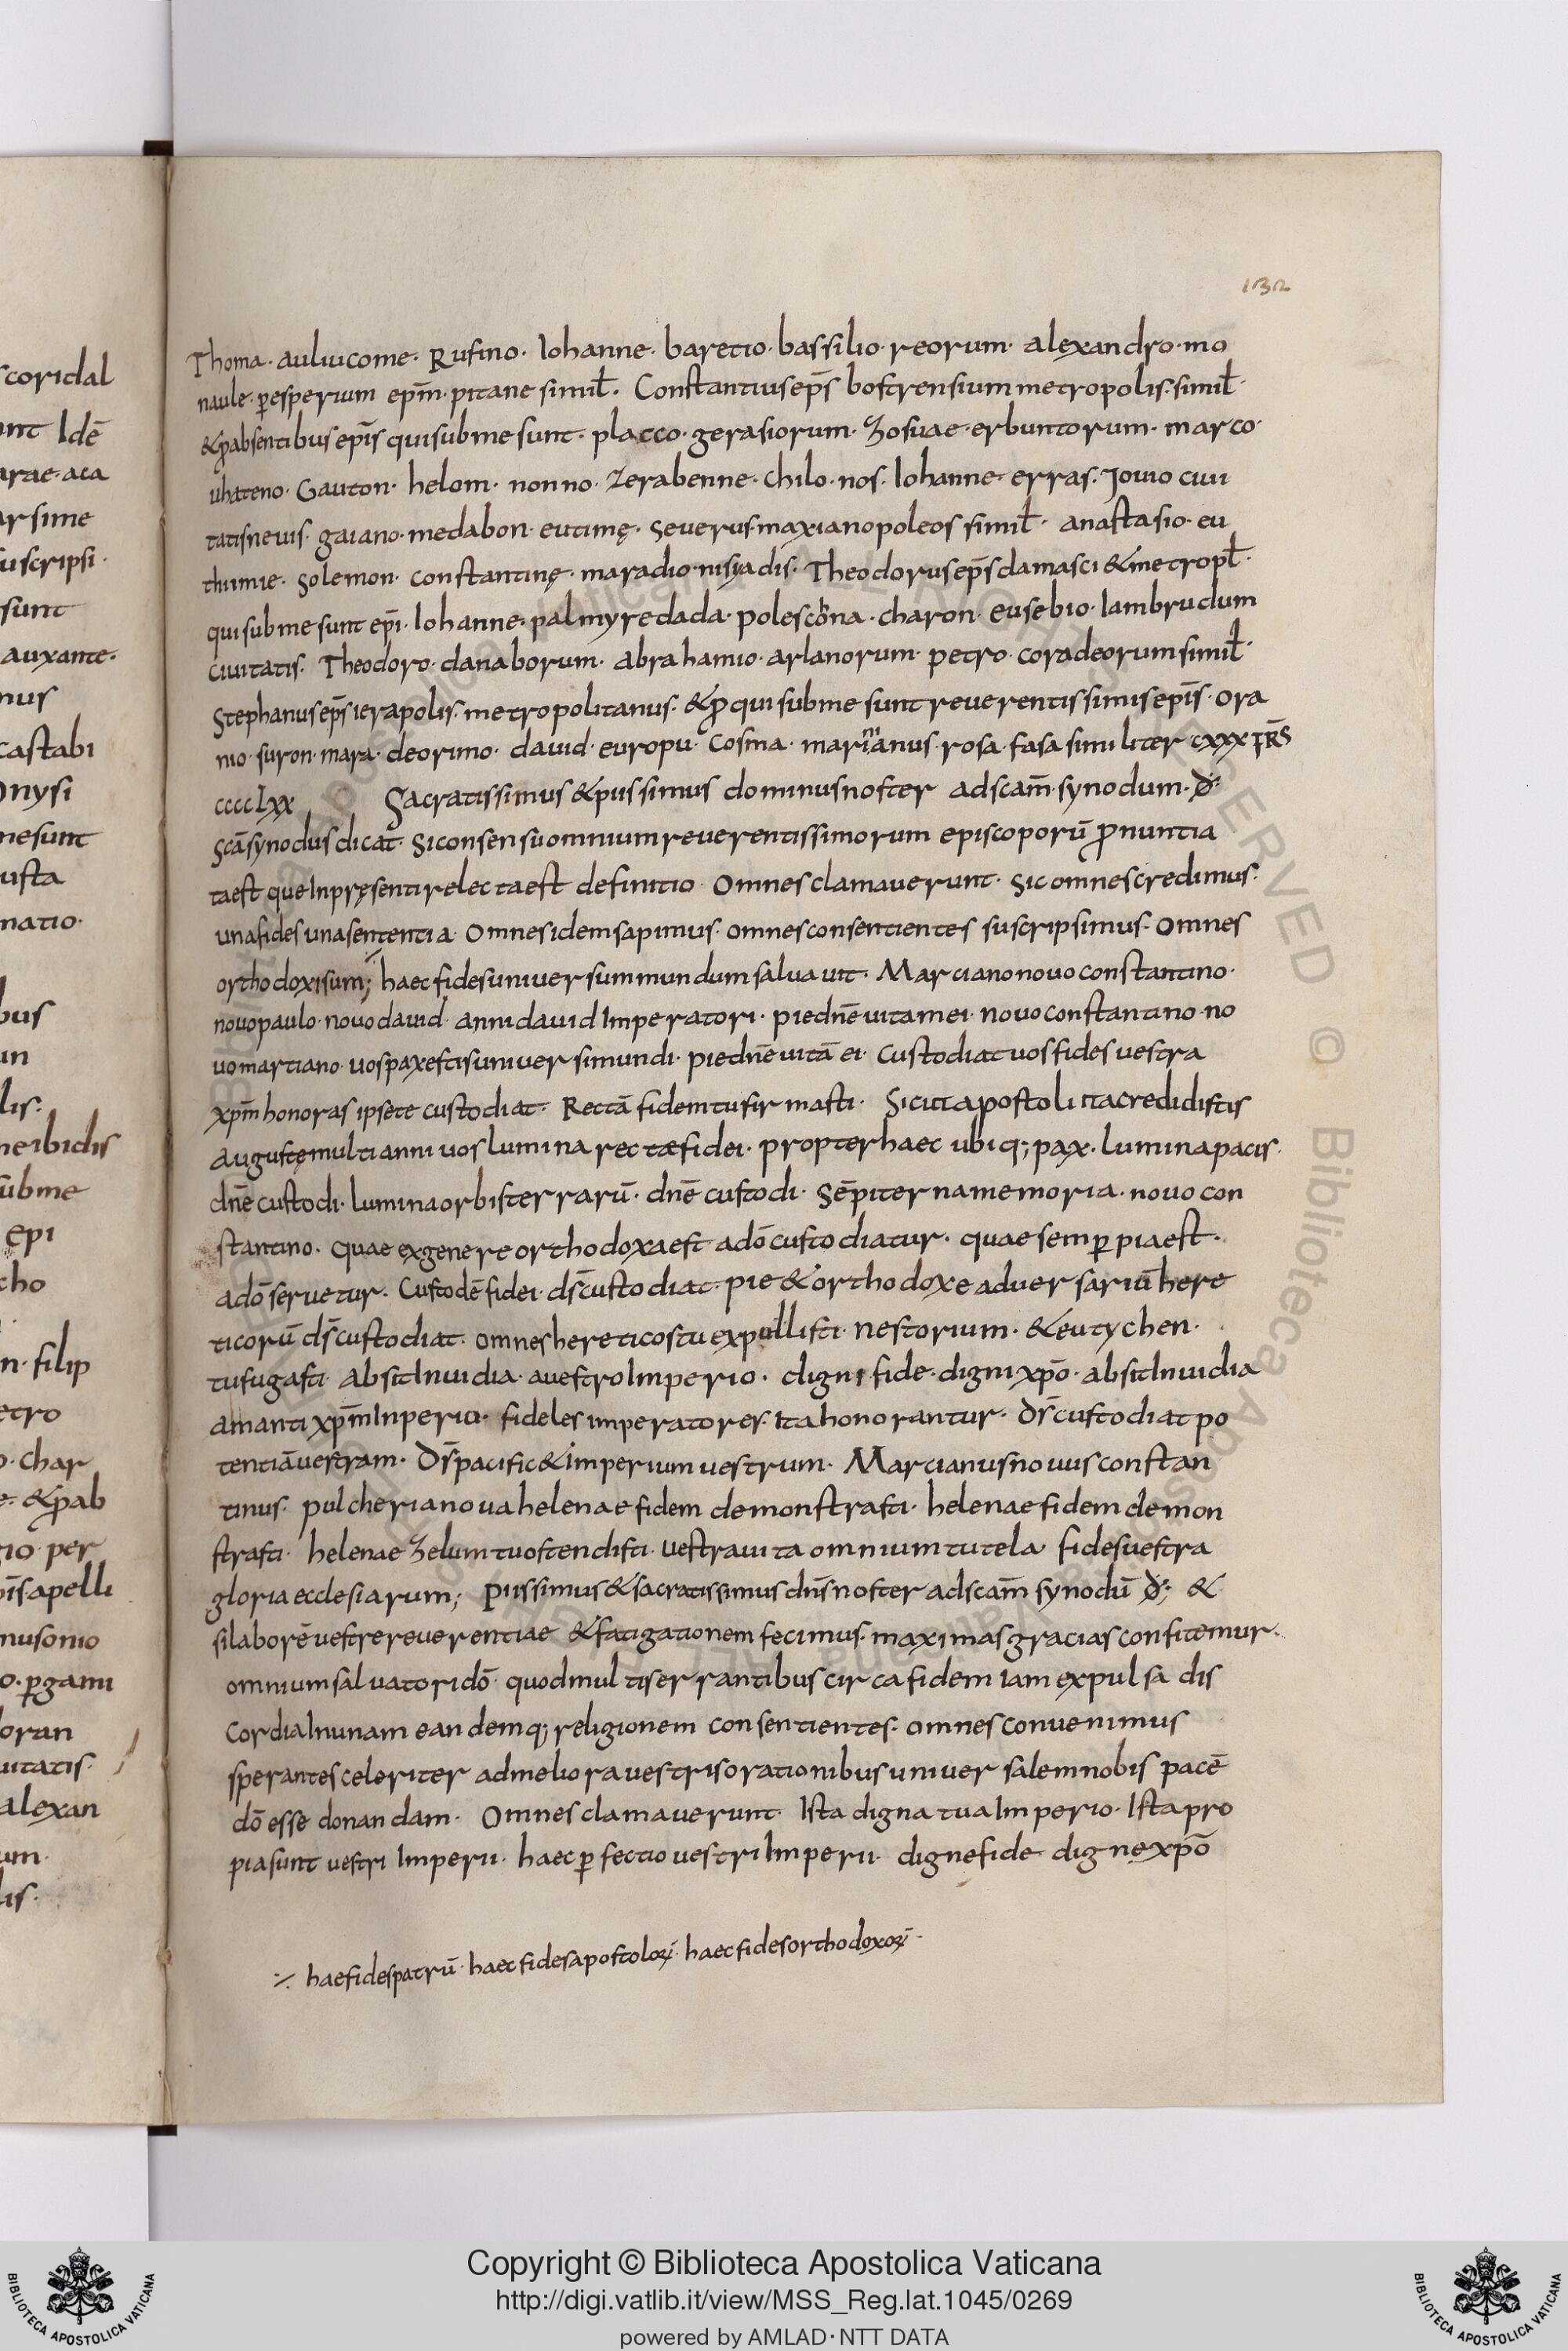 132
Thoma · auliucome · Rufino · Iohanne · baretio · bassilio · reorum · alexandro · mo
naule · ꝑesperium ep̄m · pitane simil̄ · Constantius ep̄s bostrensium metropolis · simil̄ ·
&ꝓabsentibus ep̄is qui sub me sunt · placco · gerasiorum · Zosuae · erbuntorum · marco ·
uhateno · Gauton · helom · nonno · Zerabenne · chilo · nos · Iohanne · erras · Jouio ciui
tatis neuis · gaiano · medabon · eutimę · Seuerus · maxianopoleos simil̄ · anastasio · eu
thimie · Solemon · constantinę · maradio · nisyadis · Theodorus ep̄s damasci & metropl̄ ·
qui sub me sunt ep̄i · Iohanne · palmyre dada · polescona · charon · eusebio · Iambrudum
ciuitatis · Theodoro · danaborum · abrahamio · arlanorum · petro · coradeorum simil̄ ·
Stephanus ep̄s ierapolis · metropolitanus · &ꝓqui sub me sunt reuerentissimis ep̄is · Ora
nio · suron · mara · deorimo · dauid · europu · Cosma · marinianus · rosa · fasa similiter · cxxx FR̄S
cccclxx Sacratissimus & piissimus dominus noster ad scam̄ synodum · đ ·
Scā synodus dicat̄ · Si consensu omnium reuerentissimorum episcoporū ꝓnuntia
ta est que In pręsenti relecta est definitio · Omnes clamauerunt · Sic omnes credimus ·
una fides una sententia · Omnes idem sapimus · omnes consentientes suscripsimus · Omnes
orthodoxi sum; ⁒ haec fides uniuersum mundum saluauit · Marciano nouo constantino ·
nouo paulo · nouo dauid · anni dauid Imperatori · pie dn̄e uita mei · nouo constantino · no
uo martiano · uos pax estis uniuersi mundi · pie dn̄e uitā ei · Custodiat uos fides uestra
xpm̄ honoras ipse te custodiat · Rectā fidem tu firmasti · Sicut apostoli ita credidistis
augustę multi anni uos lumina rectae fidei · propter haec ubiq; pax · lumina pacis ·
dn̄e custodi · lumina orbis terrarū · dn̄e custodi · Sēpiterna memoria · nouo con
stantino · quae ex genere orthodoxa est a dō custodiatur · quae semꝑ pia est ·
a dō seruetur · Custodē fidei · ds̄ custodiat · pie & orthodoxe aduersariū here
ticorū ds̄ custodiat · omnes hereticos tu expullisti · nestorium · & eutychen ·
tu fugasti · absit Inuidia · a uestro Imperio · digni fide · digni xpō · absit Inuidia
amanti xpm̄ Inperio · fideles imperatores · Ita honorantur · Ds̄ custodiat po
tentiā uestram · Ds̄ pacific& Imperium uestrum · Marcianus nouus constan
tinus · pulcheria noua helenae fidem demonstrasti · helenae fidem demon
strasti · helenae Zelum tu ostendisti · uestra uita omnium tutela fides uestra
gloria ecclesiarum; piissimus & sacratissimus dn̄s noster ad scam̄ synodū đ; &
si laborē uestre reuerentiae & fatigationem fecimus · maximas gracias confitemur ·
omnium saluatori dō · quod multis errantibus circa fidem Iam expulsa dis
cordia In unam eandemq; religionem consentientes · omnes conuenimus
sperantes celeriter ad meliora uestris orationibus uniuersalem nobis pacē
dō esse donandam · Omnes clamauerunt · Ista digna tua Imperio · Ista pro
pia sunt uestri Imperii · haec ꝑfectio uestri Imperii · digne fide dignę xpō
⁒ hae fides patrū · haec fides apostoloꝝ · haec fides orthodoxoꝝ ·
scoridal
unt Idē
arae · aca
ar sime
suscripsi ·
sunt
auxante ·
mus
castabi
onysi
me sunt
usta
natio ·
bus
un
lis ·
ne ibidis
sub me
epi
cho
n · filip
etro
o · char
e · &ꝓab
gio · per
pīs apelli
musonio
o · ꝑgami
oran
uitatis ·
alexan
um ·
lis ·
Copyright © Biblioteca Apostolica Vaticana
http://digi.vatlib.it/view/MSS_Reg.lat.1045/0269
powered by AMLAD·NTT DATA
BIBLIOTECA APOSTOLICA VATICANA
BIBLIOTECA APOSTOLICA VATICANA